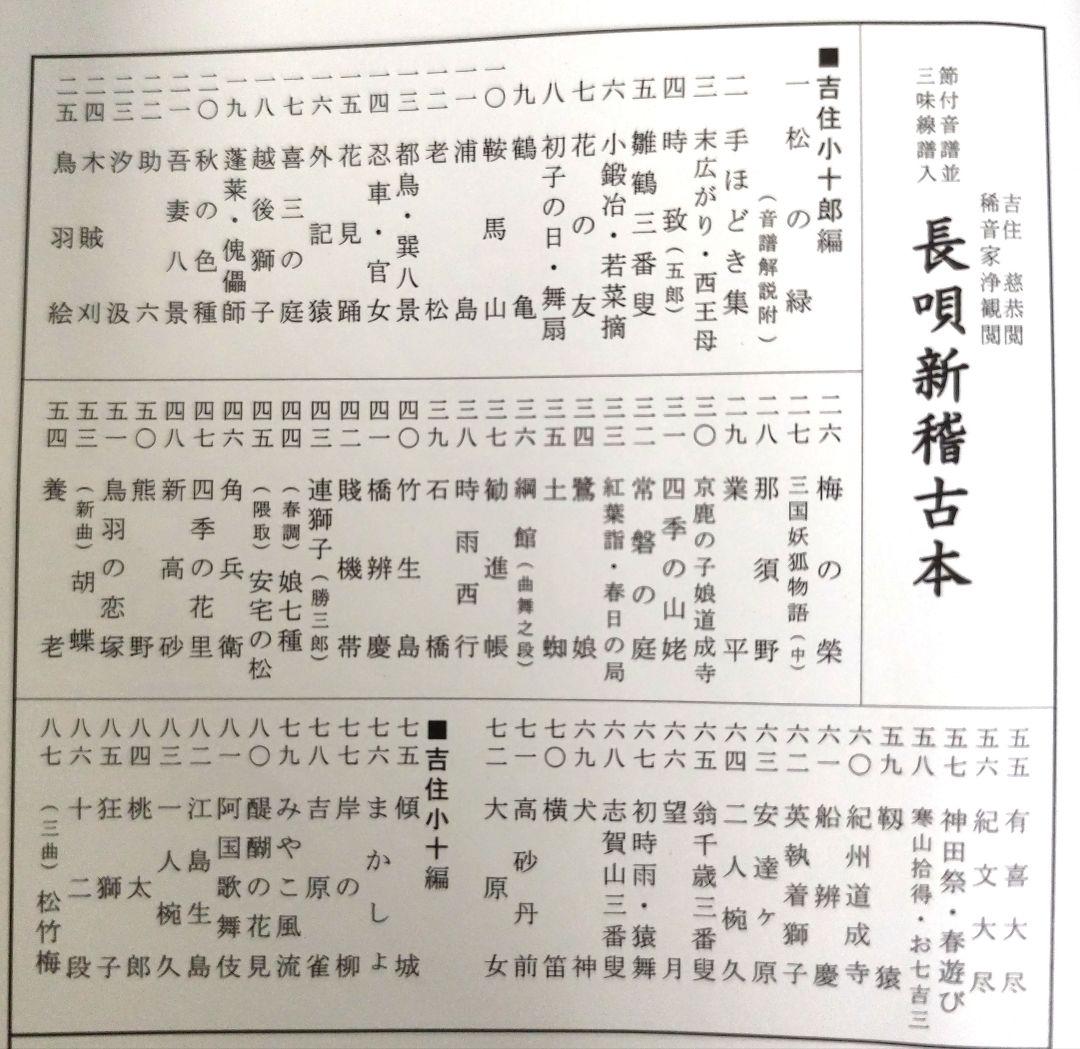 節付音譜並
三味線譜入
吉住 慈恭閲
稀音家浄観閲
長唄新稽古本
■吉住小十郎編
一 松の緑
(音譜解説附)
二 手ほどき集
三 末広がり・西王母
四 時致(五郎)
五 雛鶴三番叟
六 小鍛冶・若菜摘
七 花の友
八 初子の日・舞扇
九 鶴亀
一〇 鞍馬山
一一 浦島
一二 老松
一三 都鳥・巽八景
一四 忍車・官女
一五 花見踊
一六 外記猿
一七 喜三の庭
一八 越後獅子
一九 蓬莱・傀儡師
二〇 秋の色種
二一 吾妻八景
二二 助六
二三 汐汲
二四 木賊刈
二五 鳥羽絵
二六 梅の榮
二七 三国妖狐物語(中)
二八 那須野
二九 業平
三〇 京鹿の子娘道成寺
三一 四季の山姥
三二 常磐の庭
三三 紅葉詣・春日の局
三四 鷺娘
三五 土蜘
三六 綱館(曲舞之段)
三七 勧進帳
三八 時雨西行
三九 石橋
四〇 竹生島
四一 橋辨慶
四二 賤機帯
四三 連獅子(勝三郎)
四四 (春調)娘七種
四五 (隈取)安宅の松
四六 角兵衛
四七 四季の花里
四八 新高砂
五〇 熊野
五一 鳥羽の恋塚
五三 (新曲)胡蝶
五四 養老
五五 有喜大尽
五六 紀文大尽
五七 神田祭・春遊び
五八 寒山拾得・お七吉三
五九 靱猿
六〇 紀州道成寺
六一 船辨慶
六二 英執着獅子
六三 安達ヶ原
六四 二人椀久
六五 翁千歳三番叟
六六 望月
六七 初時雨・猿舞
六八 志賀山三番叟
六九 犬神
七〇 横笛
七一 高砂丹前
七二 大原女
■吉住小十編
七五 傾城
七六 まかしょ
七七 岸の柳
七八 吉原雀
七九 みやこ風流
八〇 醍醐の花見
八一 阿国歌舞伎
八二 江島生島
八三 一人椀久
八四 桃太郎
八五 狂獅子
八六 十二段
八七 (三曲)松竹梅